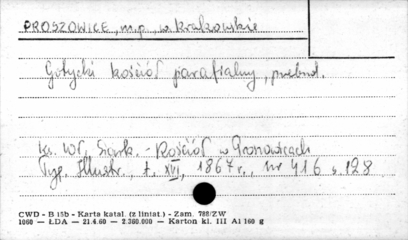 PROSZOWICE, m.p., w Krakowskie
Gotycki kościół parafialny, przebud.
ks. Wł. Siark. - Kościół w Pronowicach
Tyg. Illustr., t. XVI, 1867 r., nr 416 s. 128
CWD - B 15b - Karta katal. (z liniat.) - Zam. 788/ZW
1000 — ŁDA — 21.4.60 — 2.360.000 — Karton kl. III A1 160 g